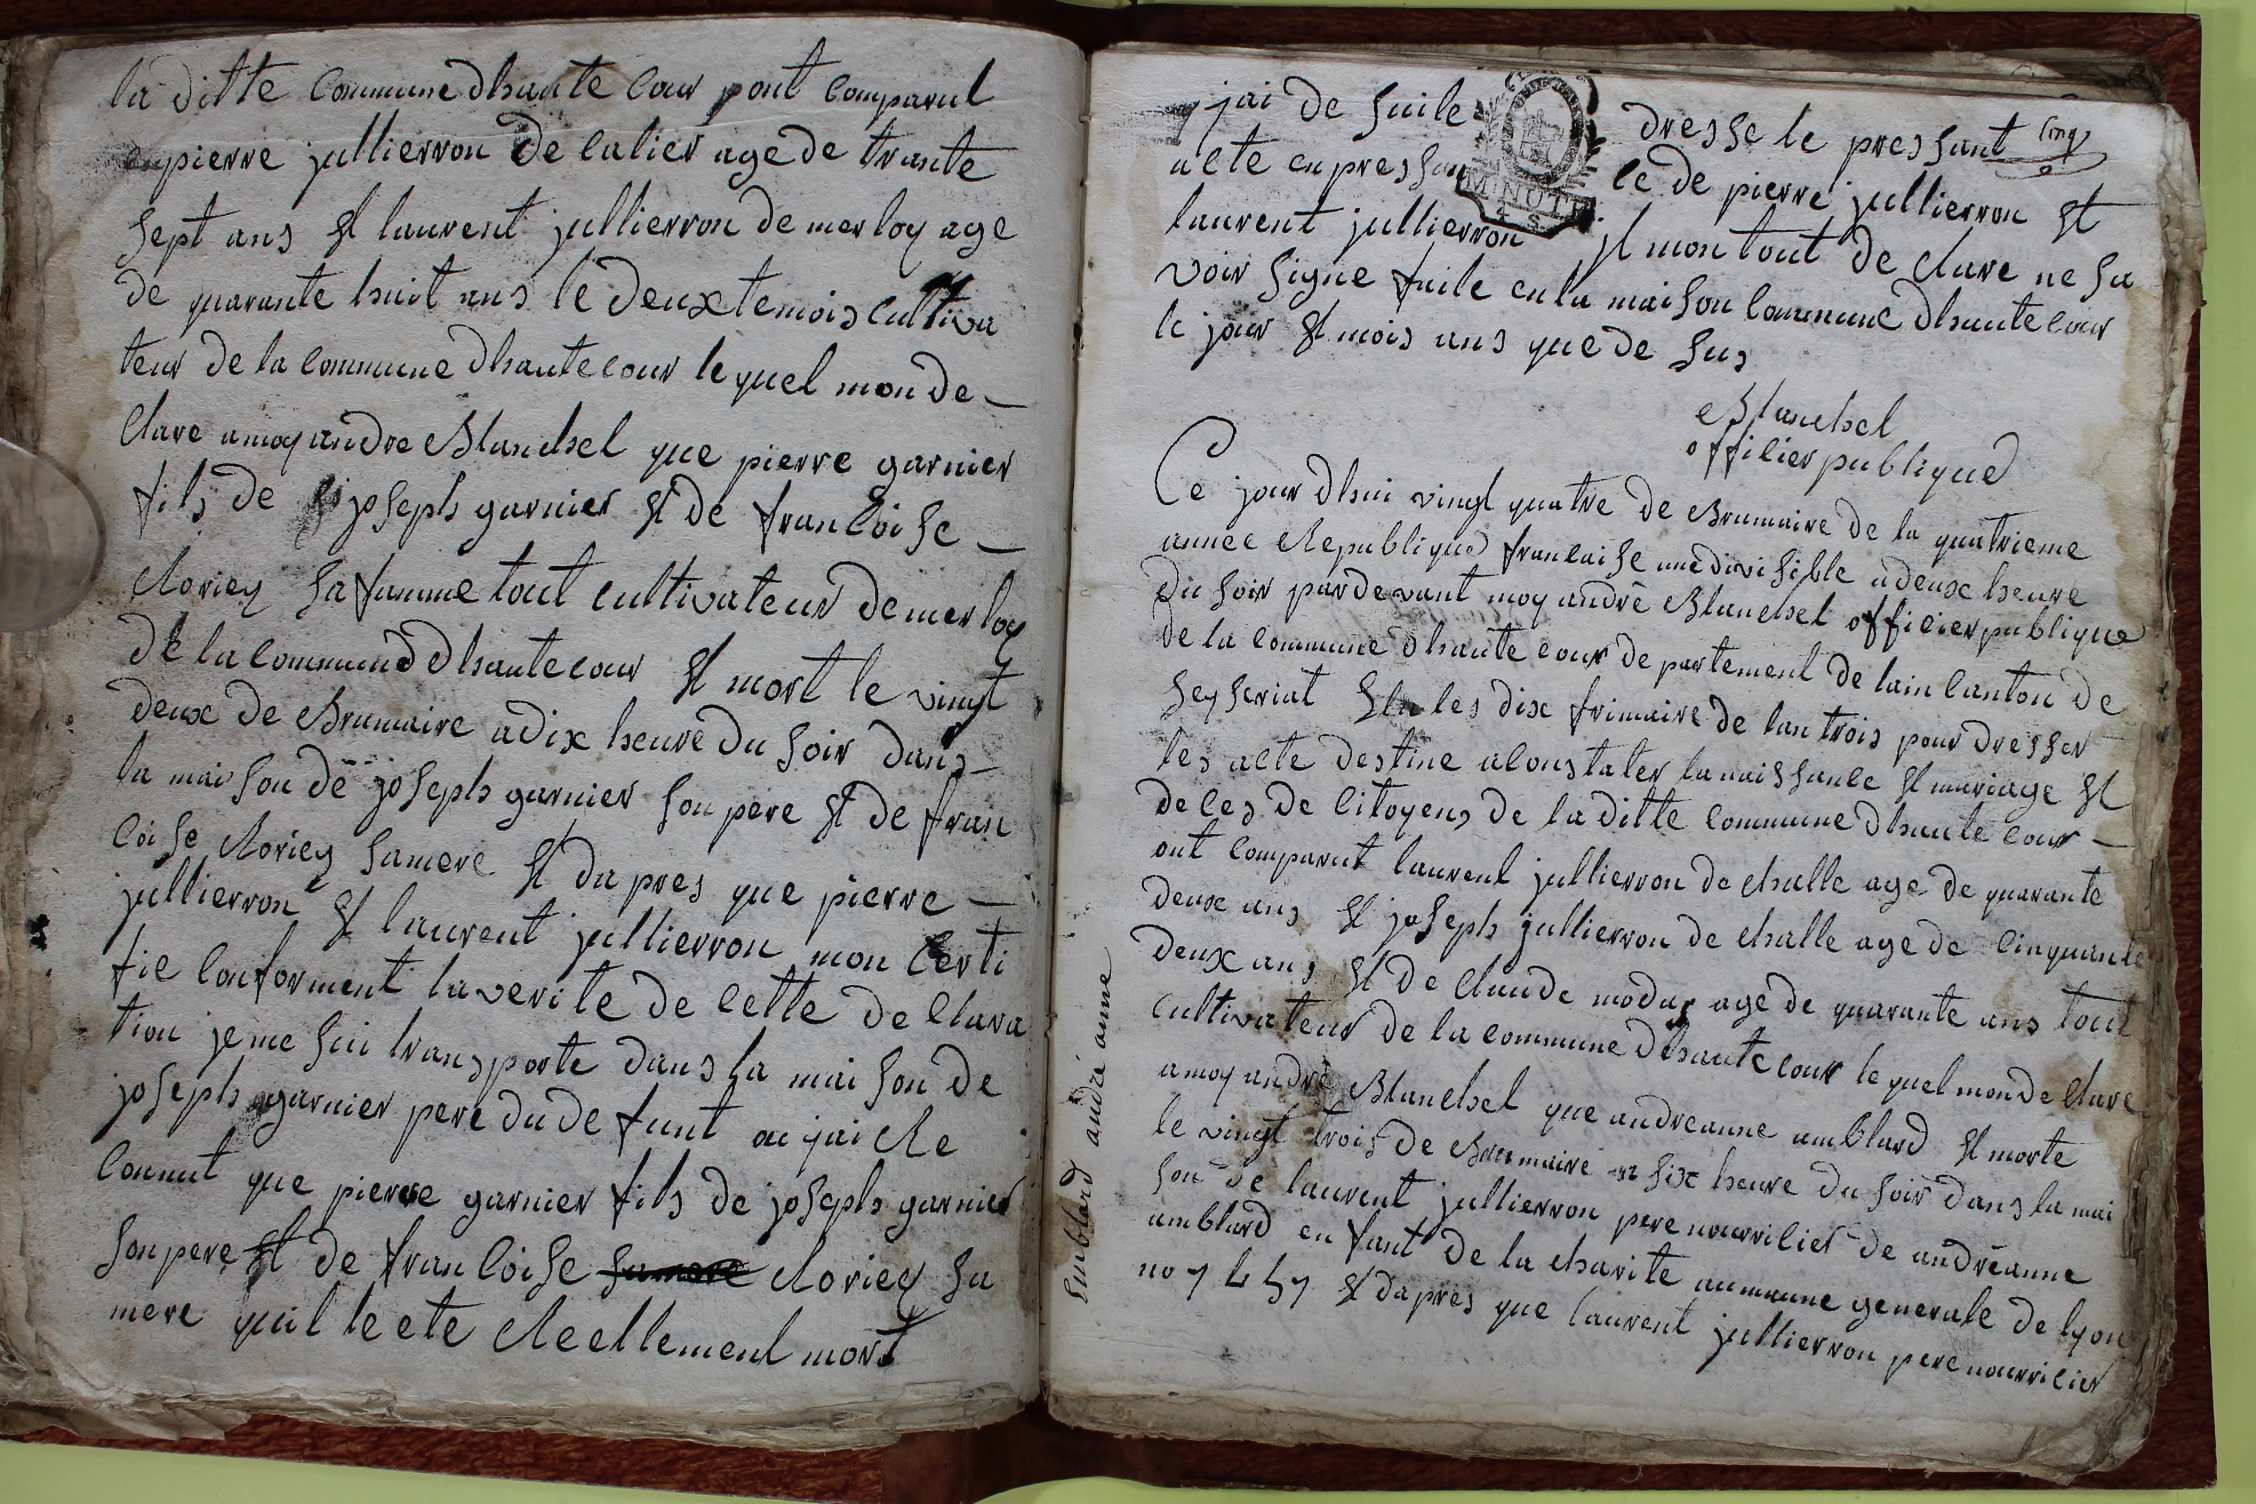 la ditte commune dhaute cour pont comparut
pierre jullierron de latier age de trante
sept ans et laurent jullierron de merloy age
de quarante huit ans le deux temois cultiva
teur de la commune dhautecour le quel mon de
clare a moy andre Blanchel que pierre garnier
fils de joseph garnier et de francoise
Moriey sa famme tout cultivateur de merloy
de la commune dhautecour et mort le vingt
deux de Brumaire a dix heure du soir dans
la maison de joseph garnier son pere et de fran
coise Moriey sa mere et dapres que pierre
jullierron et laurent jullierron mon certi
fie conforment la verite de cette declara
tion je me sui transporte dans la maison de
joseph garnier pere du defunt ou jai Re
connut que pierre garnier fils de joseph garnier
son pere et de francoise sa mere Moriey sa
mere quil le ete Reellement mort
jai de suite dresse le pressant
MINUTE
4 S
acte en pressance de pierre jullierron et
laurent jullierron il mon tout de clare ne sa
voir signe faite en la maison commune dhautecour
le jour et mois ans que de sus
Blanchel
officier publique
Ce jour dhui vingt quatre de Brumaire de la quatrieme
annee Republique francaise une divisible a deux heure
du soir pardevant moy andré Blanchel officier publique
de la commune dhaute cour departement de lain canton de
seyseriat les dix frimaire de lan trois pour dresser
les acte destine a constater la naissance et mariage et
deces de citoyens de la ditte commune dhaute cour
ont comparut laurent jullierron de challe age de quarante
deux ans et joseph jullierron de challe age de cinquante
deux ans et de claude modas age de quarante ans tout
cultivateur de la commune dhautecour le quel mon de clare
a moy andré Blanchel que andreanne amblard et morte
le vingt trois de Brumaire a six heure du soir dans la mai
son de laurent jullierron pere nourricier de andréanne
amblard enfant de la charite aumaune generale de lyon
no et dapres que laurent jullierron pere nourricier
Emblard andré anne